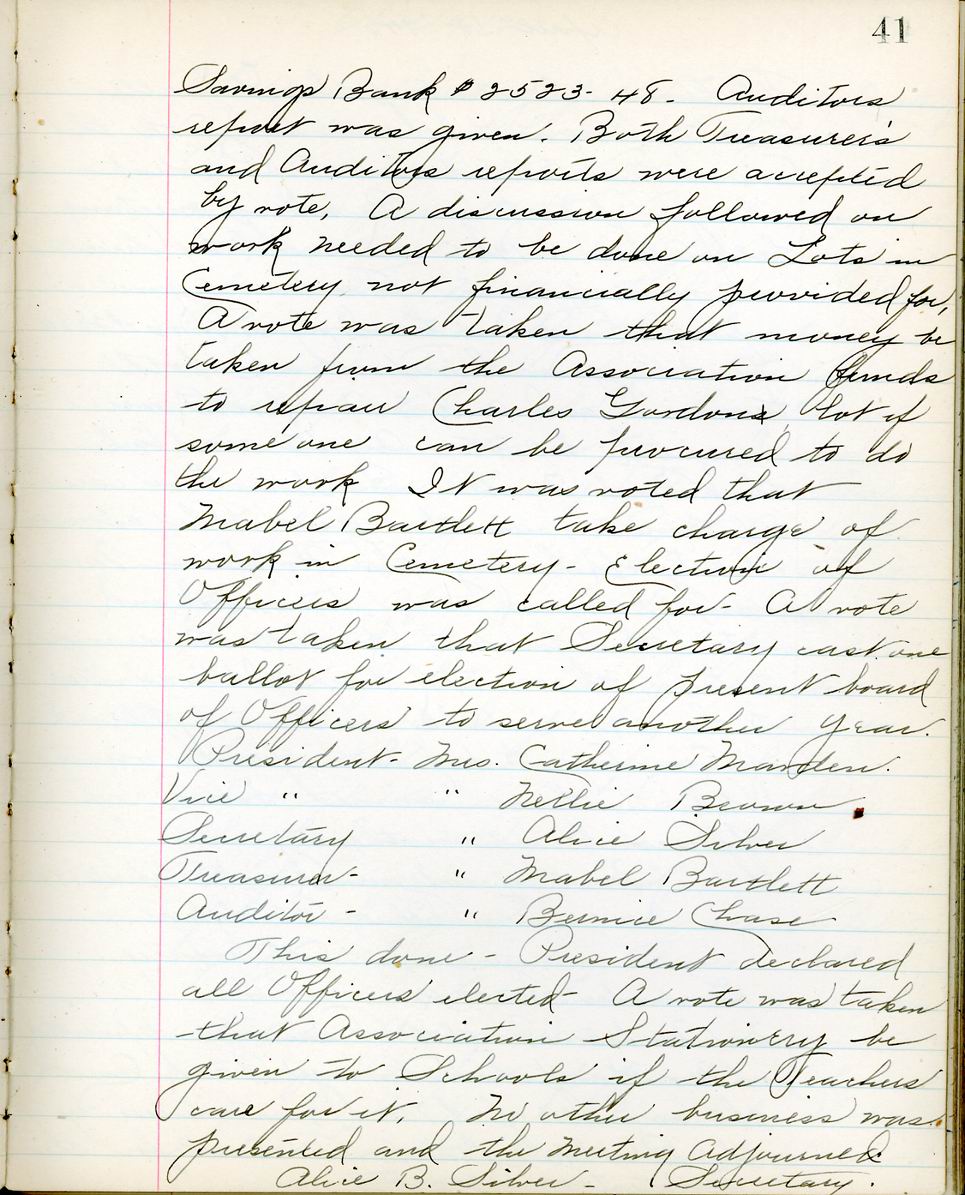 41
Savings Bank $2523-48- Auditors
report was given. Both Treasurer's
and Auditors reports were accepted
by vote. A discussion followed on
work needed to be done on Lots in
Cemetery not financially provided for,
A vote was taken that money be
taken from the Association funds
to repair Charles Gordons lot if
someone can be procured to do
the work It was voted that
Mabel Bartlett take charge of
work in Cemetery- Election of
Officers was called for- A vote
was taken that Secretary cast one
ballot for election of present board
of Officers to serve another year.
President- Mrs. Catherine Marden.
Vice " " Nellie Brown
Secretary " Alice Silver
Treasurer- " Mabel Bartlett
Auditor - " Bernice Chase
This done - President declared
all Officers elected A vote was taken
that Association Stationery be
given to Schools if the Teachers
care for it. No other business was
presented and the meeting adjourned
Alice B. Silver- Secretary.